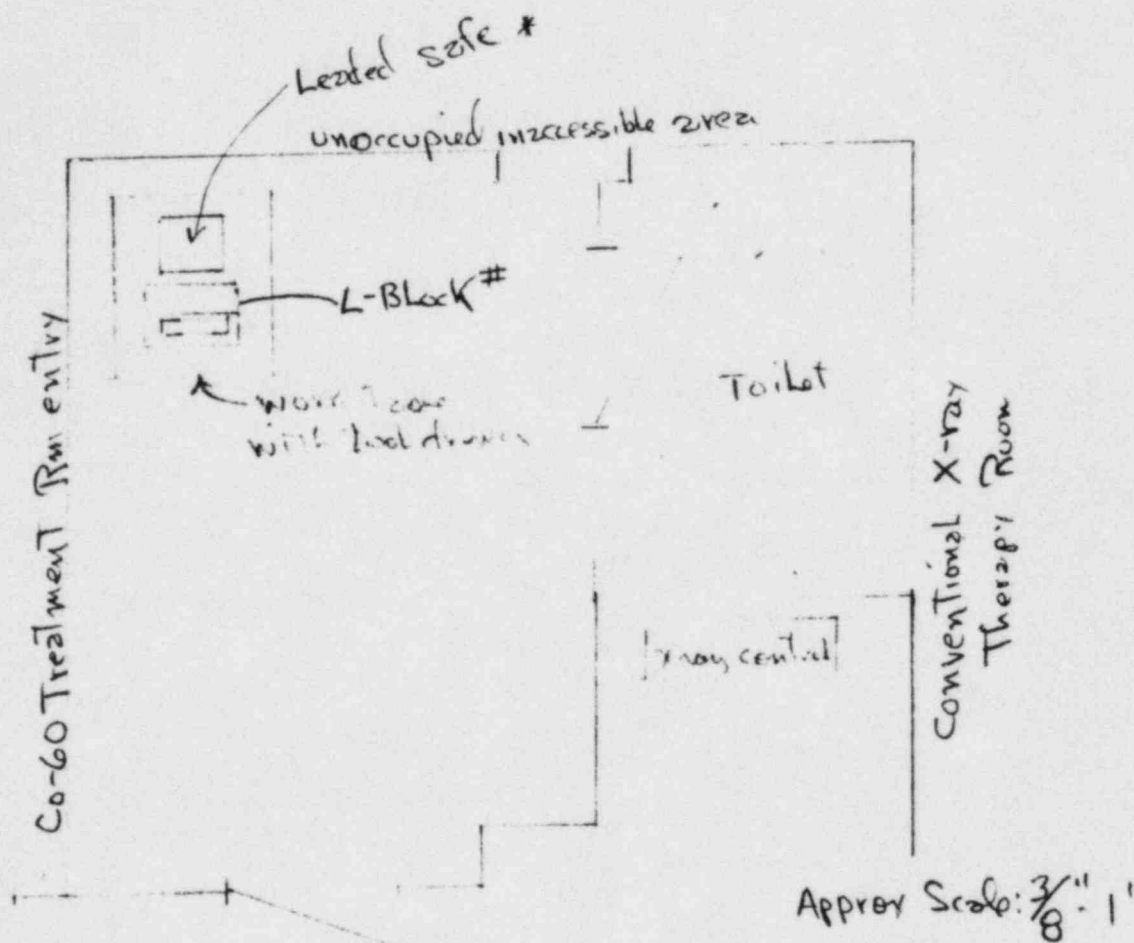 Leaded safe *
unoccupied inaccessible area
L-Block #
work
with drawer
Toilet
Co-60 Treatment Rm entry
Conventional X-ray
Therapy Room
x-ray control
Approx Scale: 3/8": 1'